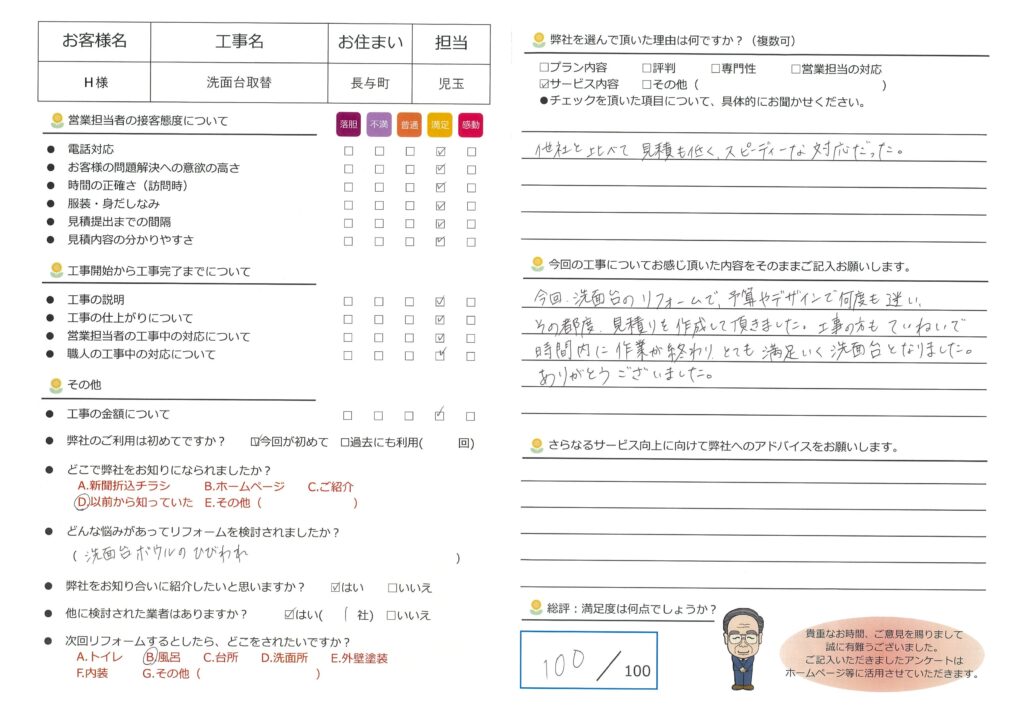 お客様名 工事名 お住まい 担当
H様 洗面台取替 長与町 児玉
営業担当者の接客態度について 落胆 不満 普通 満足 感動
● 電話対応 □ □ □ ☑ □
● お客様の問題解決への意欲の高さ □ □ □ ☑ □
● 時間の正確さ（訪問時） □ □ □ ☑ □
● 服装・身だしなみ □ □ □ ☑ □
● 見積提出までの間隔 □ □ □ ☑ □
● 見積内容の分かりやすさ □ □ □ ☑ □
工事開始から工事完了までについて
● 工事の説明 □ □ □ ☑ □
● 工事の仕上がりについて □ □ □ ☑ □
● 営業担当者の工事中の対応について □ □ □ ☑ □
● 職人の工事中の対応について □ □ □ ☑ □
その他
● 工事の金額について □ □ □ ☑ □
● 弊社のご利用は初めてですか？ ☑今回が初めて □過去にも利用( 回)
● どこで弊社をお知りになられましたか？
A.新聞折込チラシ B.ホームページ C.ご紹介
D.以前から知っていた E.その他（ ）
● どんな悩みがあってリフォームを検討されましたか？
（ 洗面台ボウルのひびわれ ）
● 弊社をお知り合いに紹介したいと思いますか？ ☑はい □いいえ
● 他に検討された業者はありますか？ ☑はい( 1 社) □いいえ
● 次回リフォームするとしたら、どこをされたいですか？
A.トイレ B.風呂 C.台所 D.洗面所 E.外壁塗装
F.内装 G.その他（ ）
弊社を選んで頂いた理由は何ですか？（複数可）
□プラン内容 □評判 □専門性 □営業担当の対応
☑サービス内容 □その他（ ）
●チェックを頂いた項目について、具体的にお聞かせください。
他社と比べて見積も低く、スピーディーな対応だった。
今回の工事についてお感じ頂いた内容をそのままご記入お願いします。
今回、洗面台のリフォームで、予算やデザインで何度も迷い、
その都度、見積りを作成して頂きました。工事の方もていねいで
時間内に作業が終わりとても満足いく洗面台となりました。
ありがとうございました。
さらなるサービス向上に向けて弊社へのアドバイスをお願いします。
総評：満足度は何点でしょうか？
100 / 100
貴重なお時間、ご意見を賜りまして
誠に有難うございました。
ご記入いただきましたアンケートは
ホームページ等に活用させていただきます。